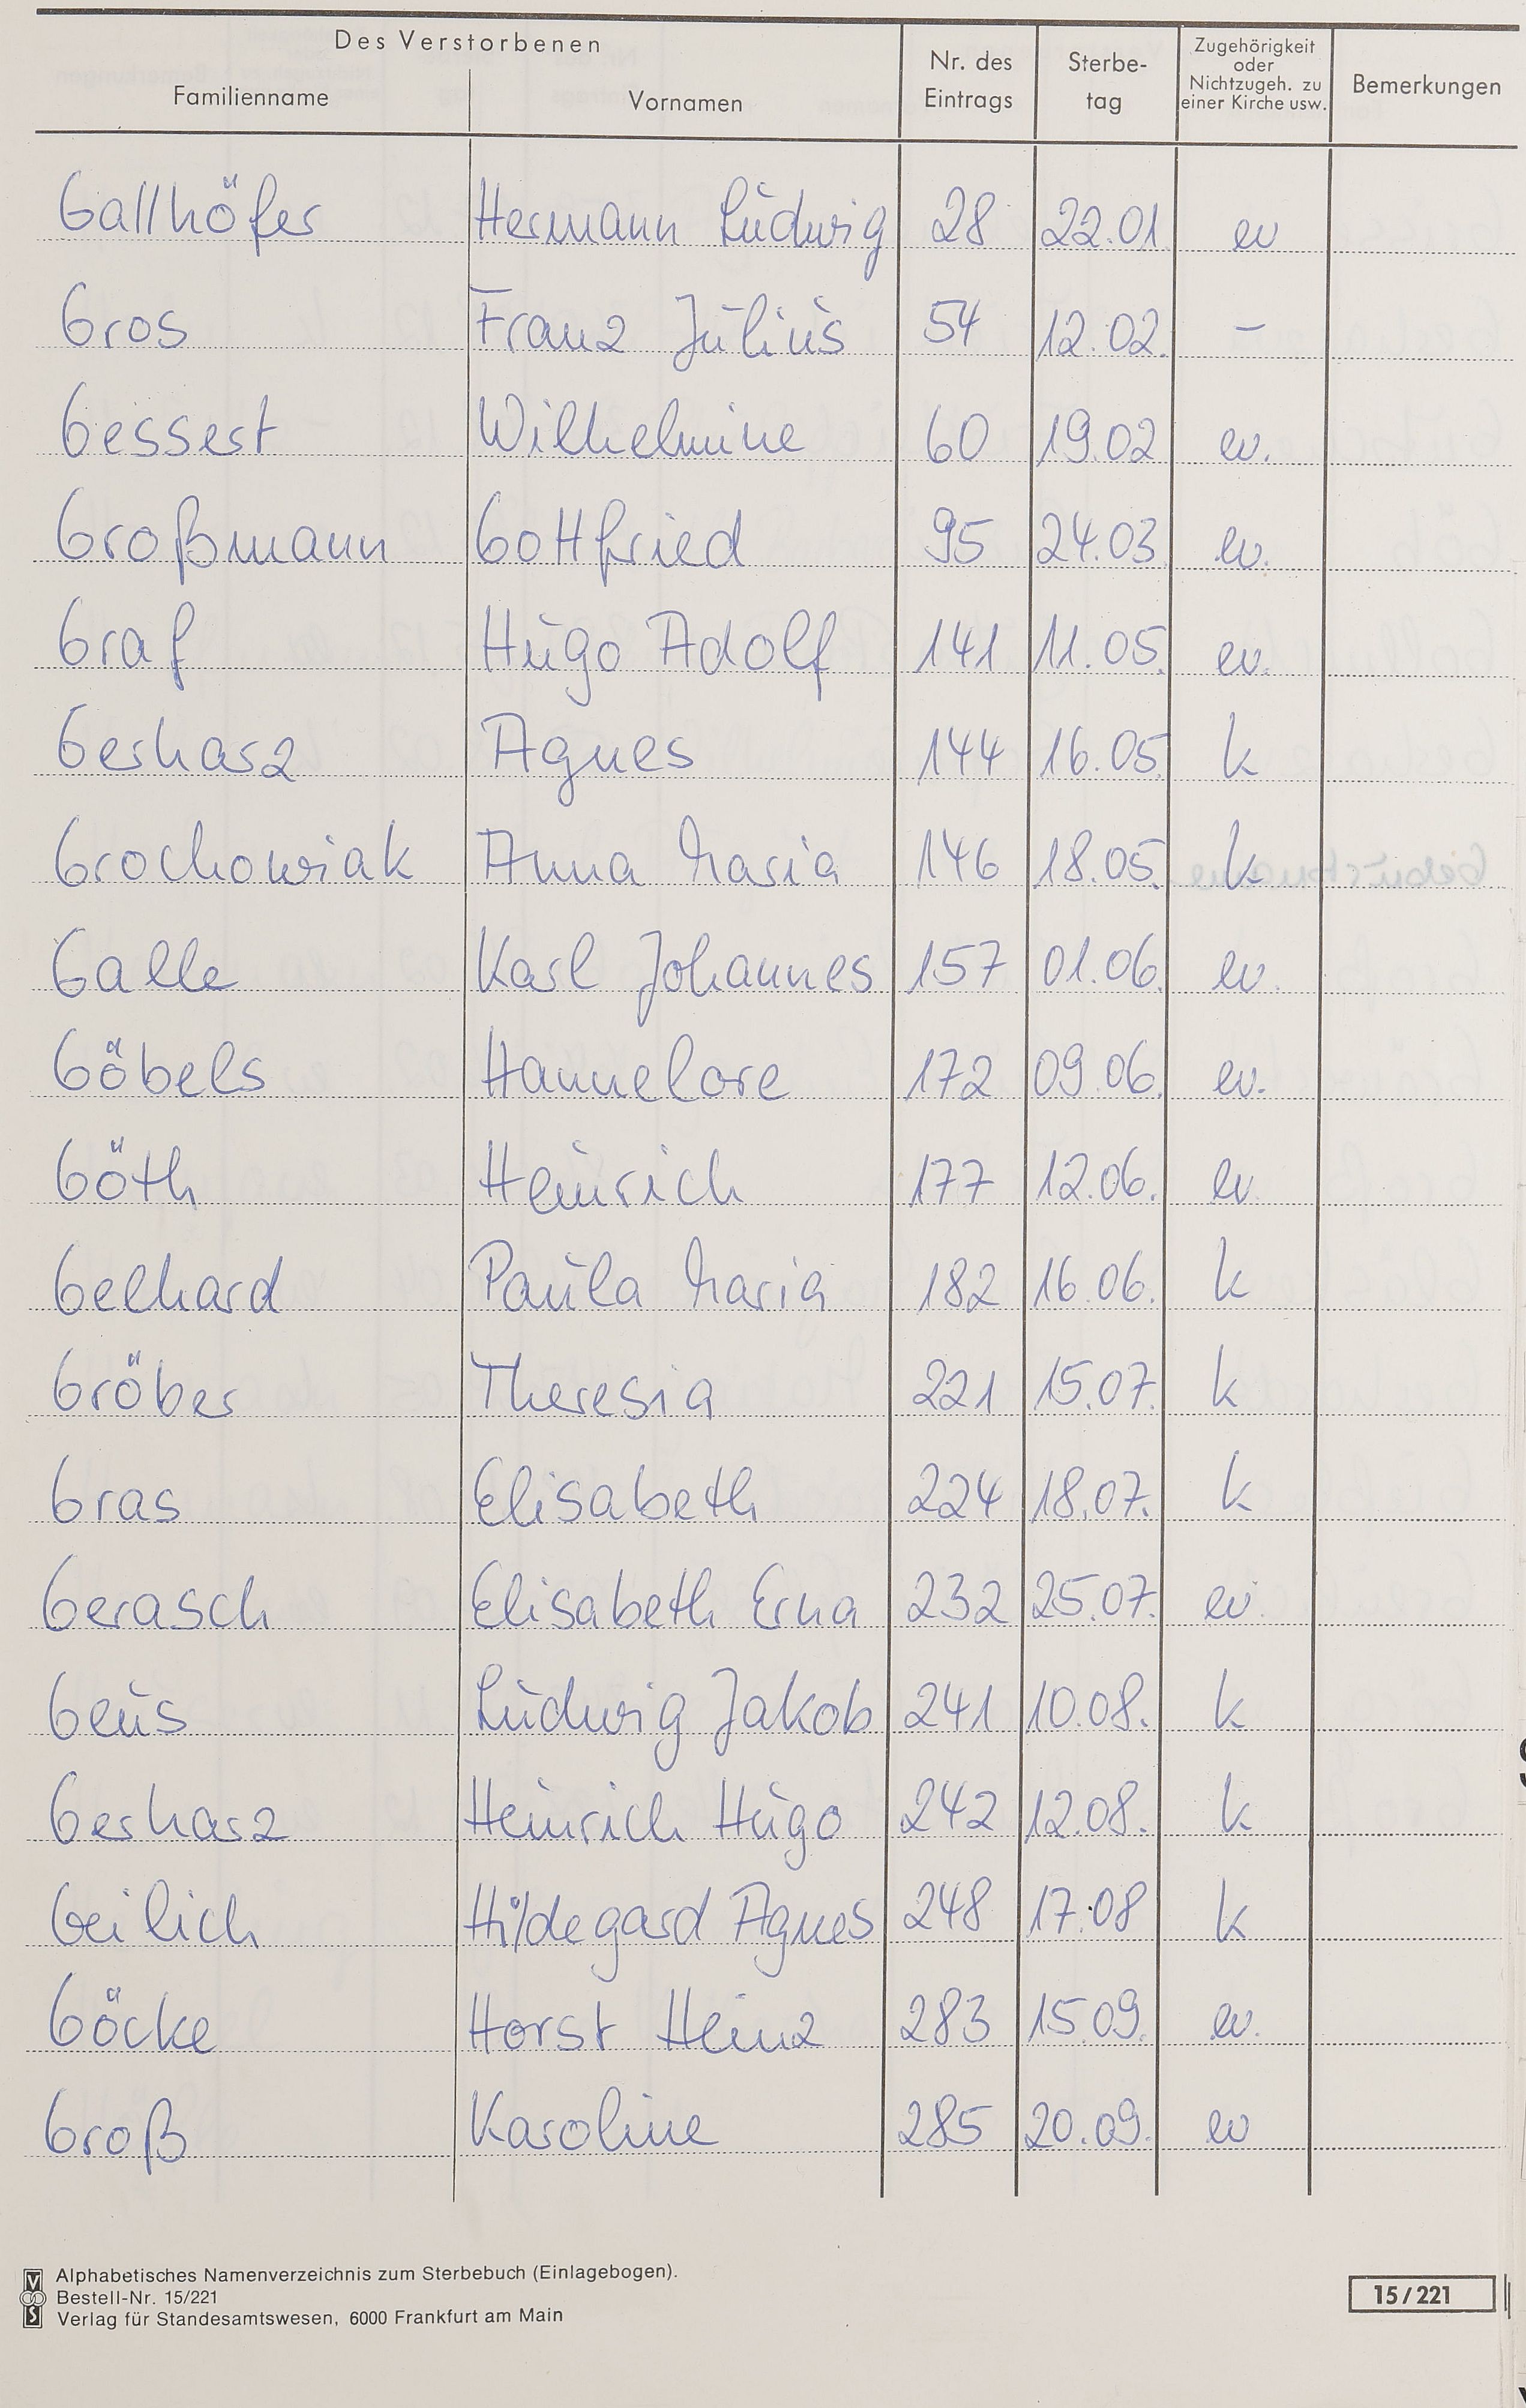 Des Verstorbenen
Familienname Vornamen Nr. des Eintrags Sterbe-tag Zugehörigkeit oder Nichtzugeh. zu einer Kirche usw. Bemerkungen
Gallhöfer Hermann Ludwig 28 22.01. ev
Gros Franz Julius 54 12.02. –
Gessert Wilhelmine 60 19.02 ev.
Großmann Gottfried 95 24.03 ev.
Graf Hugo Adolf 141 11.05. ev.
Gerharz Agnes 144 16.05. k
Grochowiak Anna Maria 146 18.05. k
Galle Karl Johannes 157 01.06. ev.
Göbels Hannelore 172 09.06. ev.
Göth Heinrich 177 12.06. ev.
Gelhard Paula Maria 182 16.06. k
Gröber Theresia 221 15.07. k
Gras Elisabeth 224 18.07. k
Gerasch Elisabeth Erna 232 25.07. ev.
Geus Ludwig Jakob 241 10.08. k
Gerharz Heinrich Hugo 242 12.08. k
Geilich Hildegard Agnes 248 17.08 k
Göcke Horst Heinz 283 15.09. ev.
Groß Karoline 285 20.09. ev
Alphabetisches Namenverzeichnis zum Sterbebuch (Einlagebogen).
Bestell-Nr. 15/221
Verlag für Standesamtswesen, 6000 Frankfurt am Main
15/221